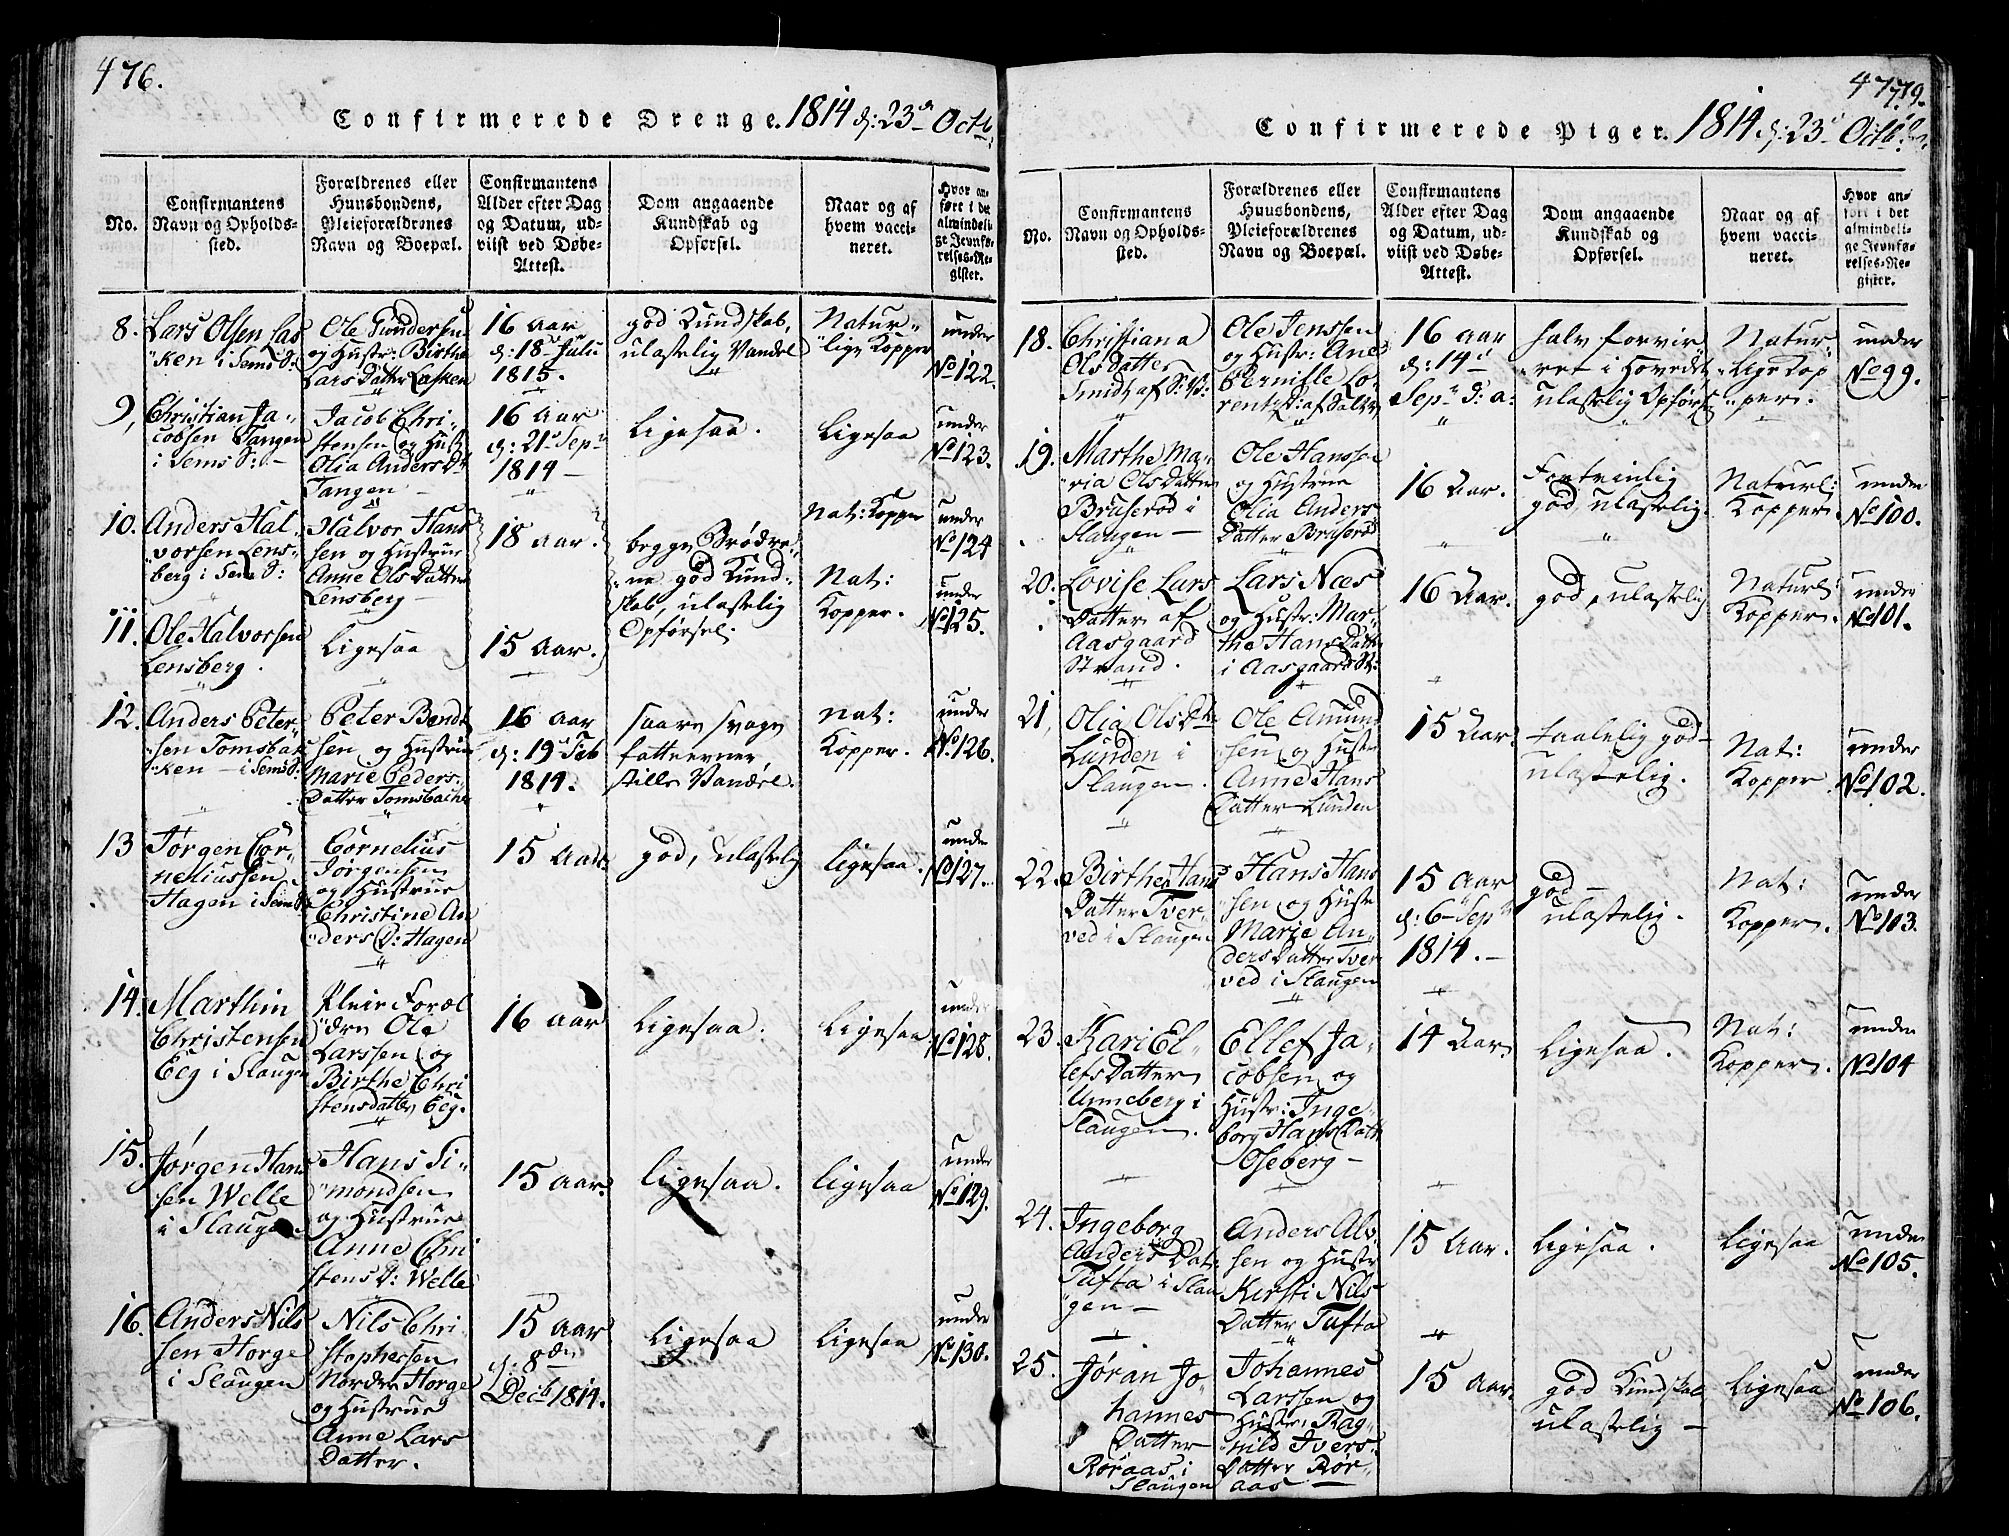 476.
Confirmerede Drenge. 1814 d: 23de Octb:
No.
Confirmantens
Navn og Opholds-
sted.
Forældrenes eller
Huusbondens,
Pleieforældrenes
Navn og Boepæl.
Confirmantens
Alder efter Dag
og Datum, ud-
viist ved Døbe-
Attest.
Dom angaaende
Kundskab og
Opførsel.
Naar og af
hvem vacci-
neret.
Hvor an-
ført i det
almindeli-
ge Jevnfø-
relses-Re-
gister.
8.
Lars Olsen Las
ken i Sems S:
Ole Gundersen
og Hustr: Birthe
Lars Datter Lasken
16 Aar
d: 18de Juli
1815.
god Kundskab,
ulastelig Vandel
Natur-
lige Kopper
under
No 122.
9,
Christian Ja-
cobsen Tangen
i Sems S: -
Jacob Chri-
stensen og Hust
Olia Anders Dt
Tangen -
16 Aar
d: 21de Sepr
1814 -
Ligesaa.
Ligesaa
under
No 123.
10.
Anders Hal
vorsen Lens-
berg i Sems S:
Halvor Hans
sen og Hustrue
Anne Ols Datter
Lensberg -
18 Aar.
begge Brødre-
ne god Kund-
skab, ulastelig
Opførsel.
Nat: Kopper
under
No 124
11.
Ole Halvorsen
Lensberg.
Ligesaa
15 Aar.
Nat:
Kopper.
under
No 125.
12.
Anders Peter-
sen Tomsbak
ken - i Sems S:
Peter Bendt
sen og Hustrue
Marie Peders-
Datter Tomsbakke
16 Aar
d: 19de Feb
1814.
saare svage
fatteevner,
stille Vandel.
Nat:
Kopper.
under
No 126.
13
Jørgen Cor-
neliussen
Hagen i Sems S
Cornelius
Jørgensen
og Hustrue
Christine An
ders D: Hagen
15 Aar.
god, ulastelig
ligesaa.
under
No 127.
14.
Marthin
Christensen
Eeg i Slaugen
Pleie Foræl
dre Ole
Larssen og
Birthe Chri
stensdatter Eeg.
16 Aar
Ligesaa.
Ligesaa
under
No 128.
15.
Jørgen Hans
sen Welle
i Slaugen
Hans Si-
mondsen
og Hustrue
Anne Chri
stens D: Welle
15 Aar.
ligesaa.
ligesaa
under
No 129.
16.
Anders Nils
sen Horge
i Slaugen
Nils Chri-
stophersen
Nordre Horge
og Hustrue
Anne Lars
Datter.
15 Aar
d: 8den
Decb 1814.
Ligesaa
Ligesaa
under
No 130.
477
Confirmerede Piger. 1814 d: 23de Octb:
No.
Confirmantens
Navn og Opholds-
sted.
Forældrenes eller
Huusbondens,
Pleieforældrenes
Navn og Boepæl.
Confirmantens
Alder efter Dag
og Datum, ud-
viist ved Døbe-
Attest.
Dom angaaende
Kundskab og
Opførsel.
Naar og af
hvem vacci-
neret.
Hvor an-
ført i det
almindeli-
ge Jevnfø-
relses-Re-
gister.
18.
Christiana
Ols Datter
Ole Jenssen
og Hustr: Ane
Pernille Lo-
rentz D: af
16 Aar
d: 14de
Sepr d: a:
halv forvir
ret i Hovedet
ulastelig Opførsel
Natur
lige Kop
per.
under
No 99.
19.
Marthe Ma-
ria Ols Datter
Braserød i
Slaugen -
Ole Hanssen
og Hustrue
Olia Anders
Datter Braserød
16 Aar.
Fortrinlig
god ulastelig.
Naturl:
Kopper.
under
No 100.
20.
Lovise Lars
Datter af
Aasgaard
Strand.
Lars Næs
og Hustr: Mar-
the Hans Datter
i Aasgaard St:
16 Aar.
god, ulastelig
Naturl:
Kopper.
under
No 101.
21,
Olia Ols Dt
Lunden i
Slaugen.
Ole Amund
sen og Hustr
Anne Hans
Datter Lunden
15 Aar.
taalelig god-
ulastelig.
Nat:
Kopper.
under
No 102.
22.
Birthe Hans
Datter Tver-
ved i Slaugen
Hans Hans
sen og Hustr
Marie An-
ders Datter Tver
ved i Slaugen
15 Aar
d: 6te Sepbr
1814. -
god -
ulastelig.
Nat:
Kopper.
under
No 103.
23.
Kari El-
lefs Datter
Unneberg i
Slaugen.
Ellef Ja-
cobsen og
Hustr: Inge-
borg Hans Datt
Oseberg -
14 Aar.
Ligesaa.
Nat:
Kopper.
under
No 104
24.
Ingeborg
Anders Dat:
Tufta i Slau
gen -
Anders Als-
sen og Hustr
Kirsti Nils
Datter Tufta
15 Aar.
Ligesaa.
Ligesaa
under
No 105.
25.
Jøran Jo-
hannes
Datter
Røraas i
Slaugen
Johannes
Larssen og
Hustr: Rag-
nild Ivers
Datter Rør-
aas -
15 Aar.
god Kundskab
ulastelig -
Ligesaa
under
No 106.